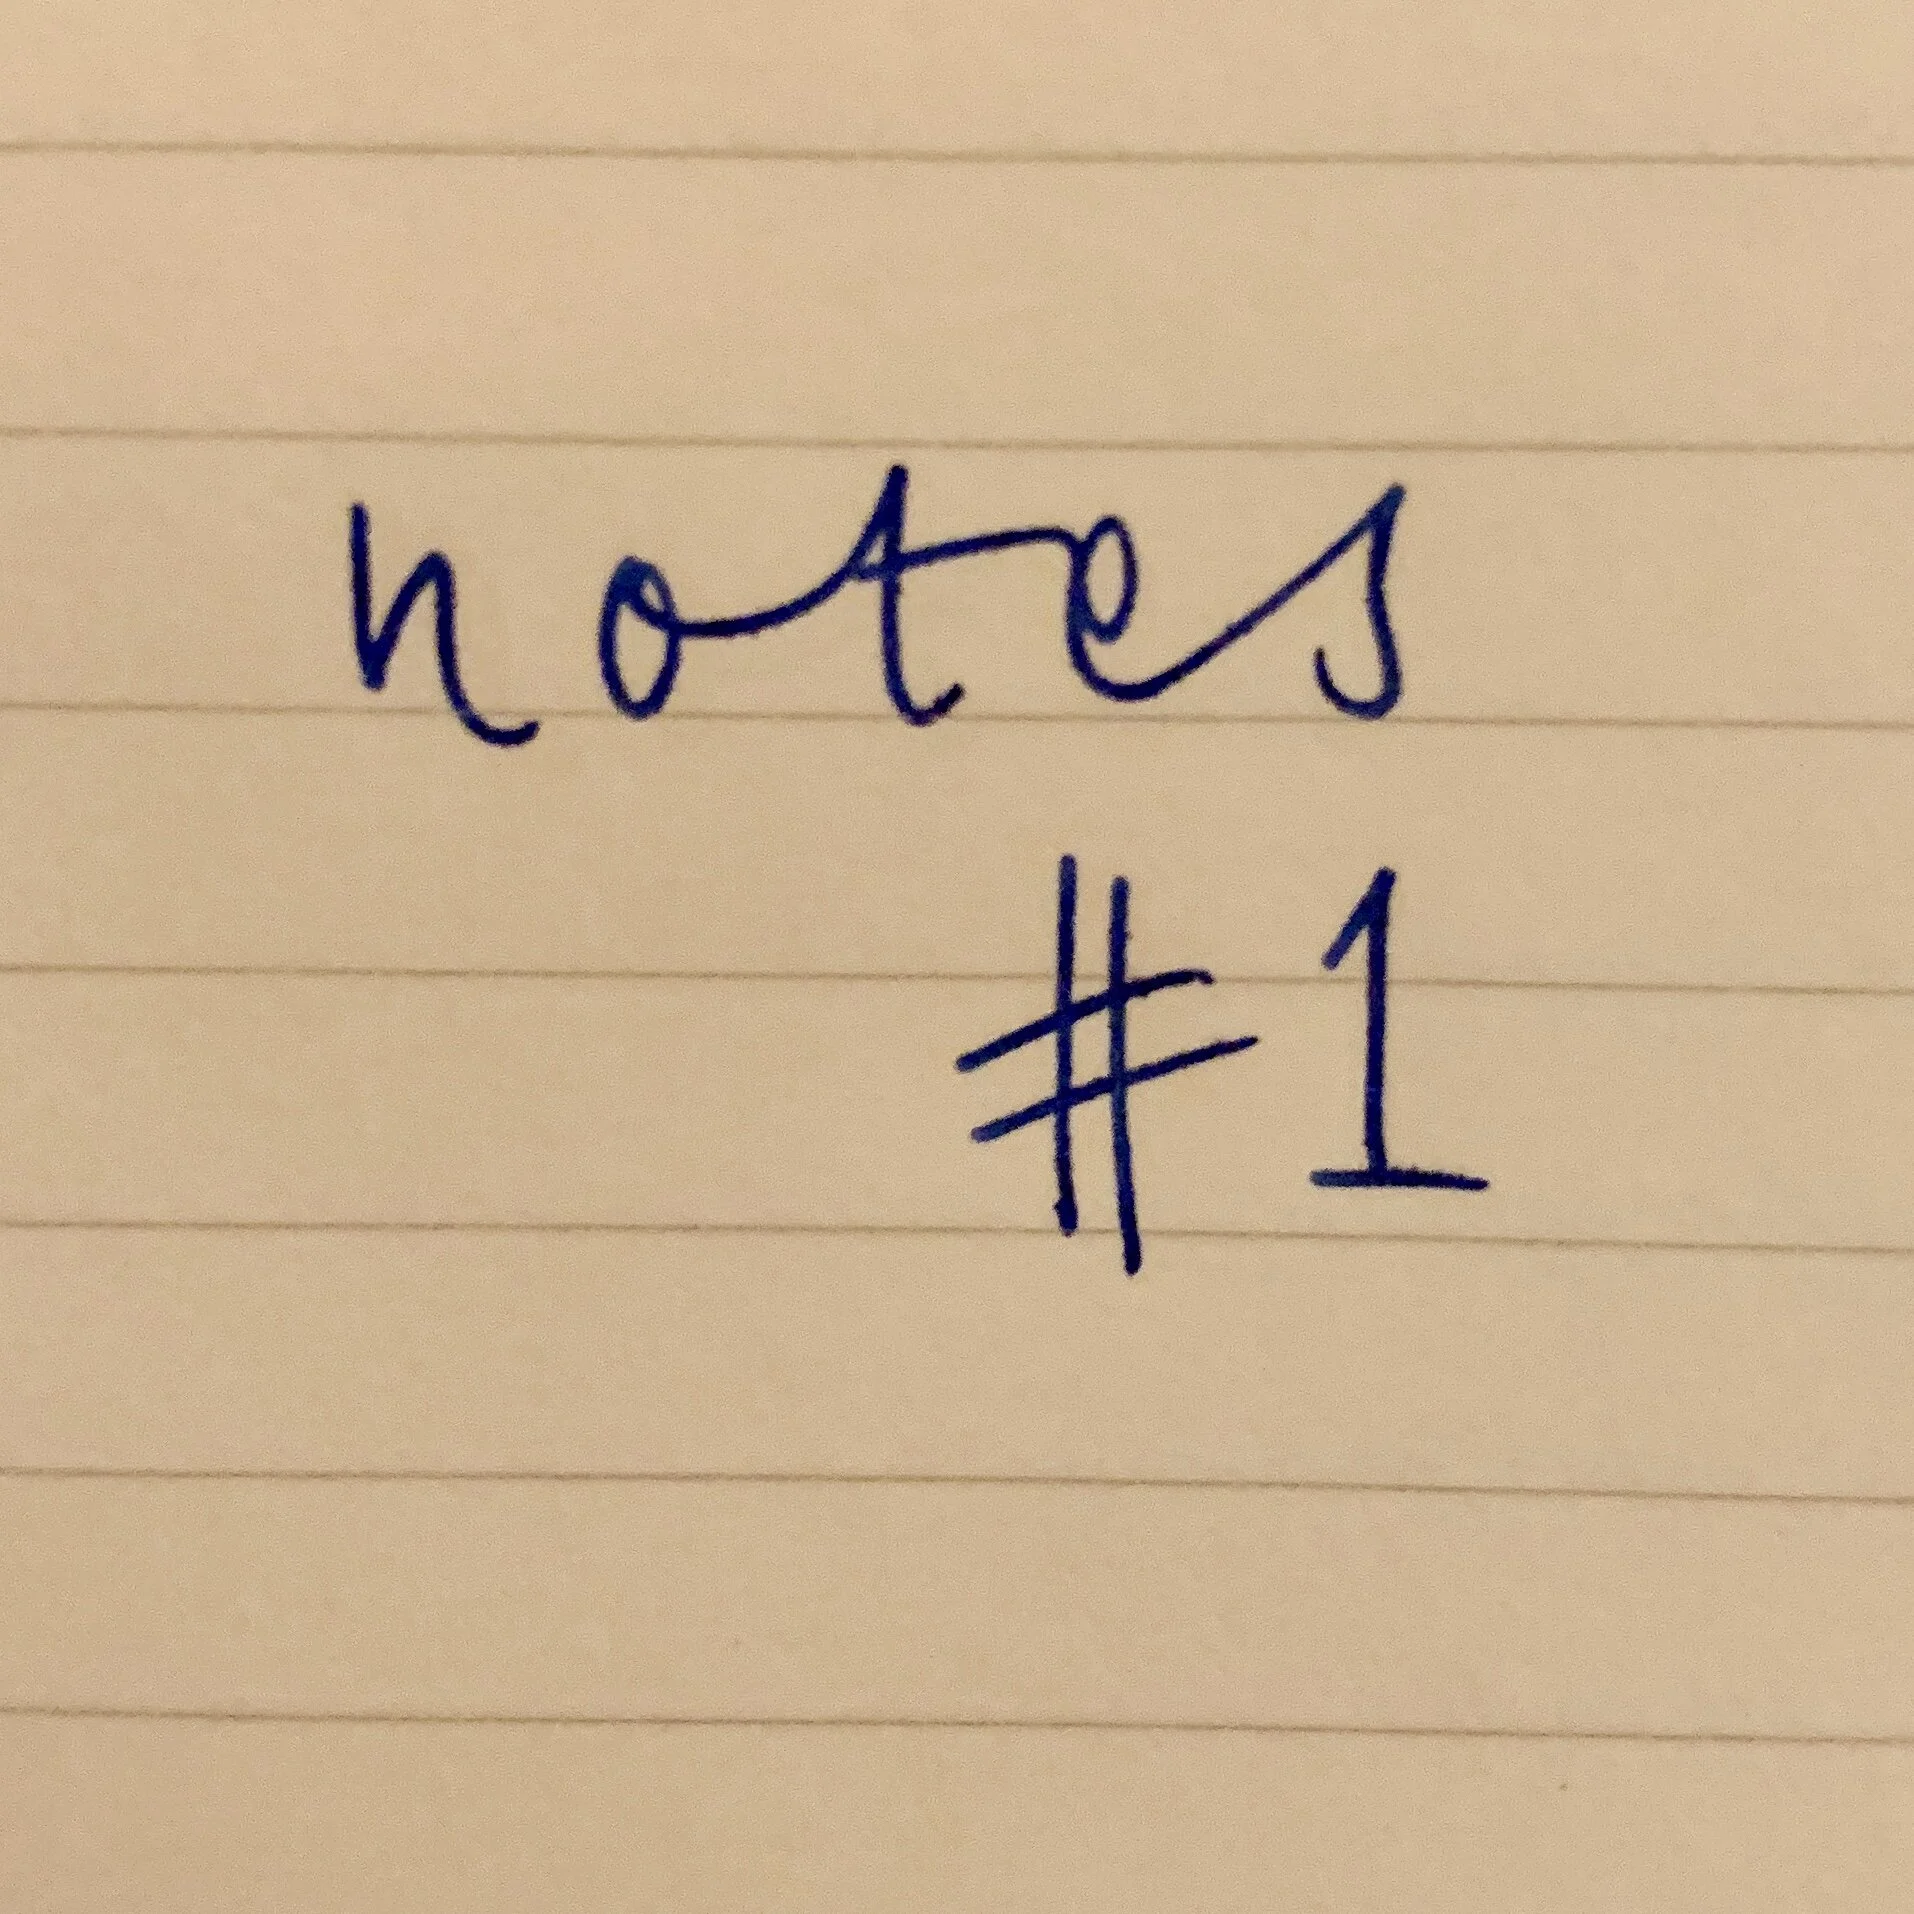 notes
#1